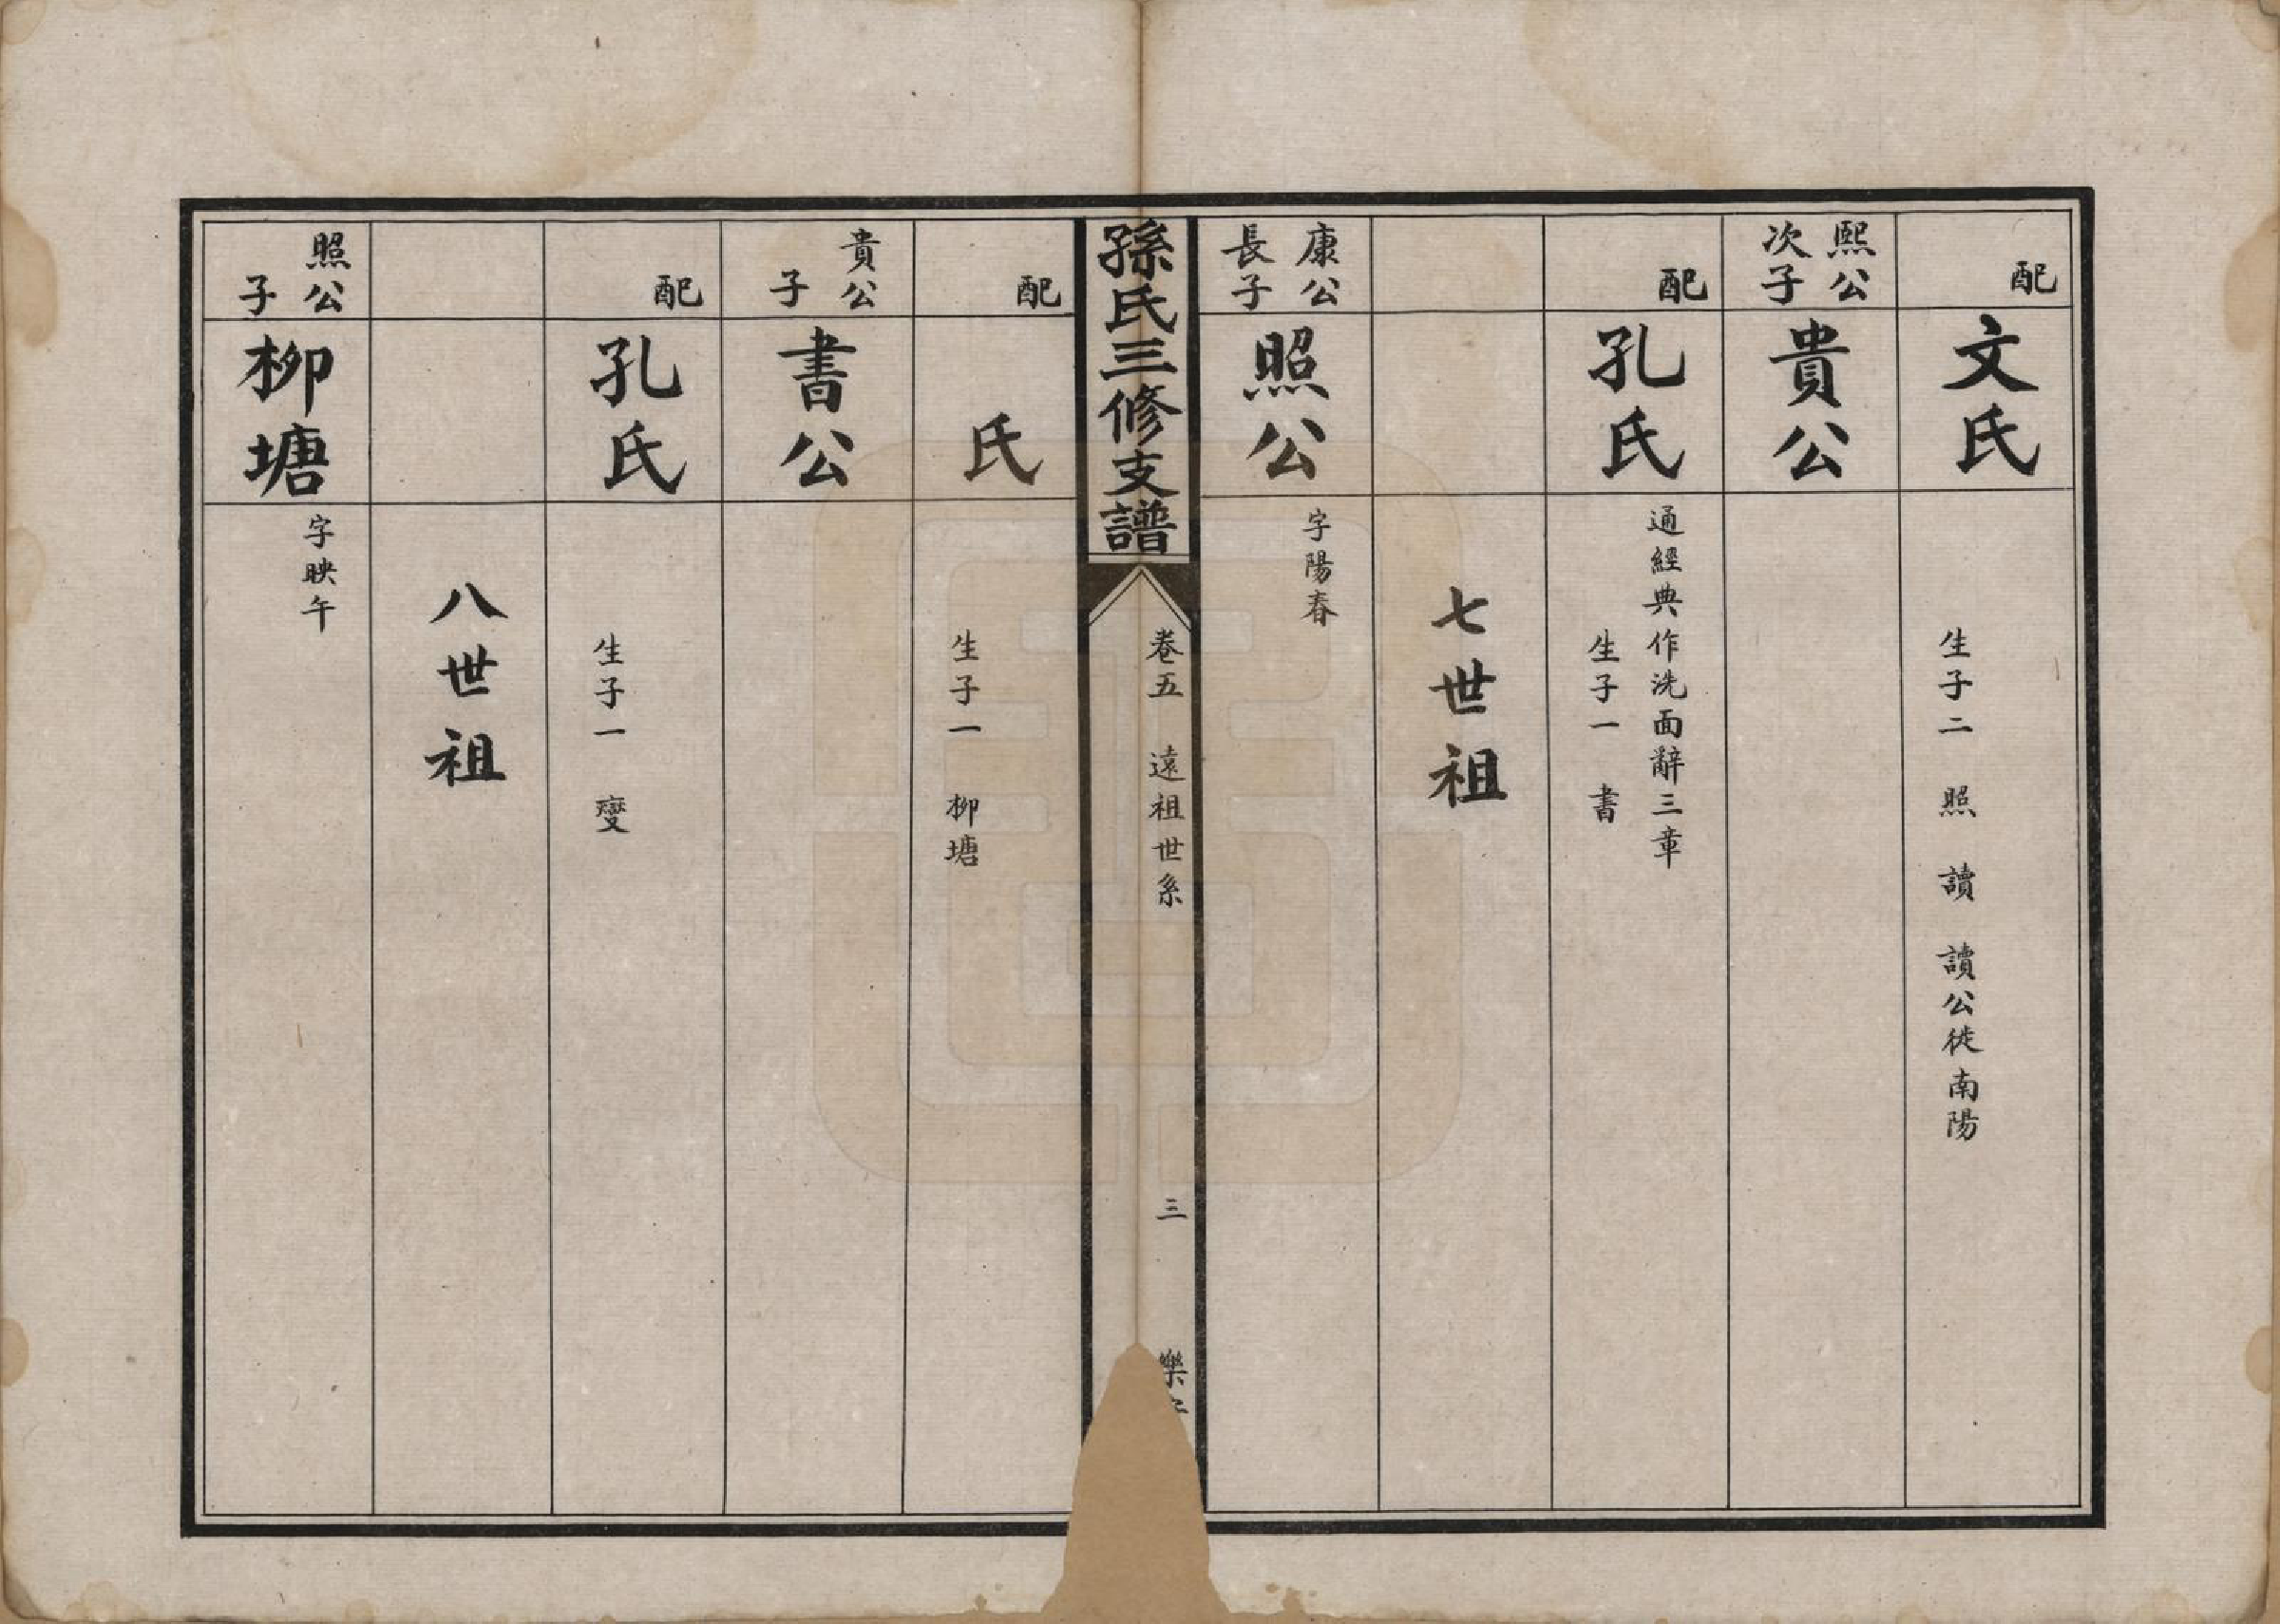 配
文氏
生子二 照 讀 讀公徙南陽
熙公
次子
貴公
配
孔氏
通經典作洗面辭三章
生子一 書
七世祖
康公
長子
照公
字陽春
孫氏三修支譜
卷五 遠祖世系
三
樂
配
氏
生子一 柳塘
貴公
子
書公
配
孔氏
生子一 燮
八世祖
照公
子
柳塘
字映午